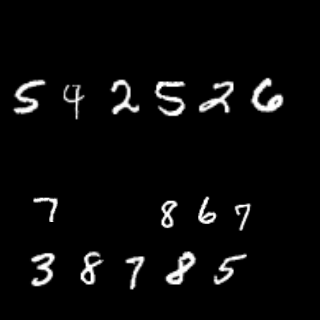 5 4 2 5 2 6
7 8 6 7
3 8 7 8 5